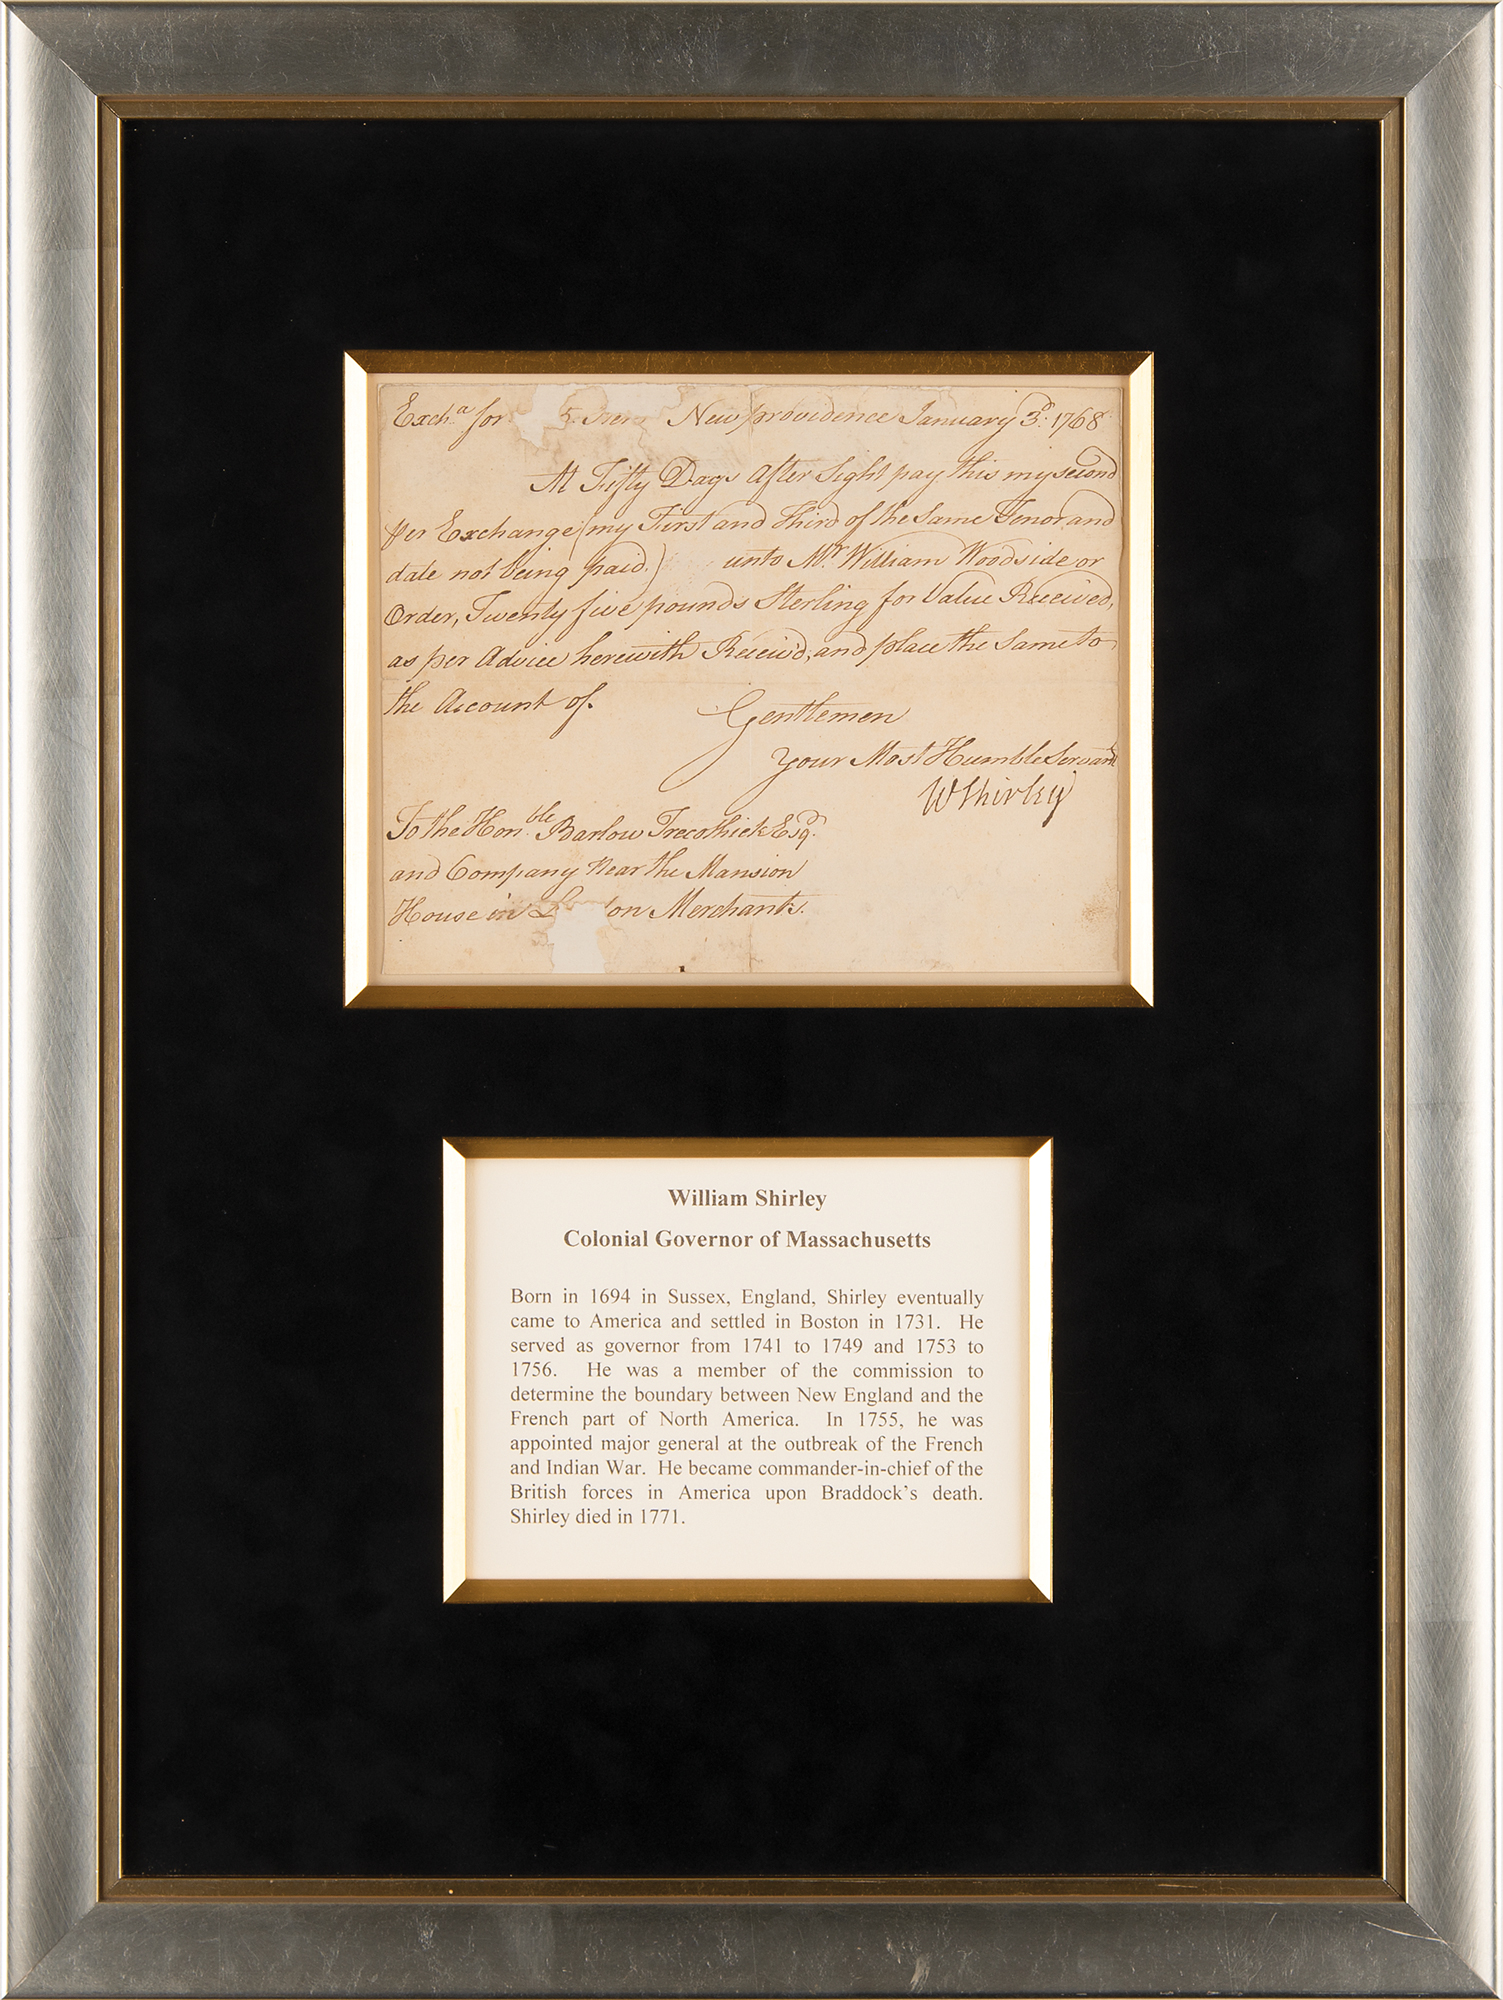 Exch.ª for 5. Ster New providence January 3.d 1768
At Fifty Days After Sight pay this my second
per Exchange (my First and Third of the Same Tenor and
date not being paid.) unto Mr. William Woodside or
Order, Twenty five pounds Sterling for Value Received,
as per Advice herewith Receiv'd, and place the Same to
the Account of.
Gentlemen
Your Most Humble Servant
WShirley
To the Hon.ble Barlow Trecothick Esq.r
and Company Near the Mansion
House in L on Merchants.
William Shirley
Colonial Governor of Massachusetts
Born in 1694 in Sussex, England, Shirley eventually
came to America and settled in Boston in 1731. He
served as governor from 1741 to 1749 and 1753 to
1756. He was a member of the commission to
determine the boundary between New England and the
French part of North America. In 1755, he was
appointed major general at the outbreak of the French
and Indian War. He became commander-in-chief of the
British forces in America upon Braddock's death.
Shirley died in 1771.